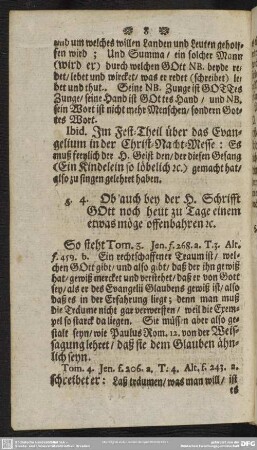 8
und um welches willen Landen und Leuten geholf-
fen wird; Und Summa/ ein solcher Mann
(wird er) durch welchen GOtt NB. beyde re-
det/ lebet und wircket/ was er redet (schreibet) le-
bet und thut. Seine NB. Zunge ist GOTTes
Zunge/ seine Hand ist GOttes Hand/ und NB.
sein Wort ist nicht mehr Menschen/ sondern Got-
tes Wort.
Ibid. Im Fest-Theil über das Evan-
gelium in der Christ-Nacht-Messe: Es
muß freylich der H. Geist den/ der diesen Gesang
(Ein Kindelein so löbelich ꝛc.) gemacht hat/
also zu singen gelehret haben.
§. 4. Ob auch bey der H. Schrifft
GOtt noch heut zu Tage einem
etwas möge offenbahren ꝛc.
So steht Tom. 3. Jen. f. 268. a. T. 3. Alt.
f. 459. b. Ein rechtschaffener Traum ist/ wel-
chen GOtt gibt/ und also gibt/ daß der ihn gewiß
hat/ gewiß mercket und verstehet/ daß er von Gott
sey/ als er des Evangelii Glaubens gewiß ist/ also
daß es in der Erfahrung liegt; denn man muß
die Träume nicht gar verwerffen/ weil die Exem-
pel so starck da liegen. Sie müssen aber also ge-
stalt seyn/ wie Paulus Rom. 12. von der Weis-
sagung lehret/ daß sie dem Glauben ähn-
lich seyn.
Tom. 4. Jen. f. 206. a. T. 4. Alt. f. 243. a.
schreibet er: Laß träumen/ was man will/ ist